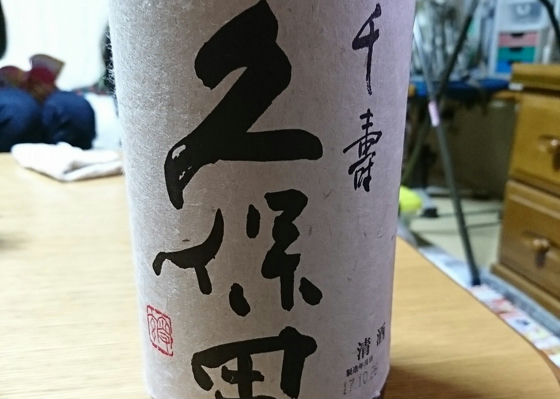 千壽
久保田
清酒
製造年月
17.10